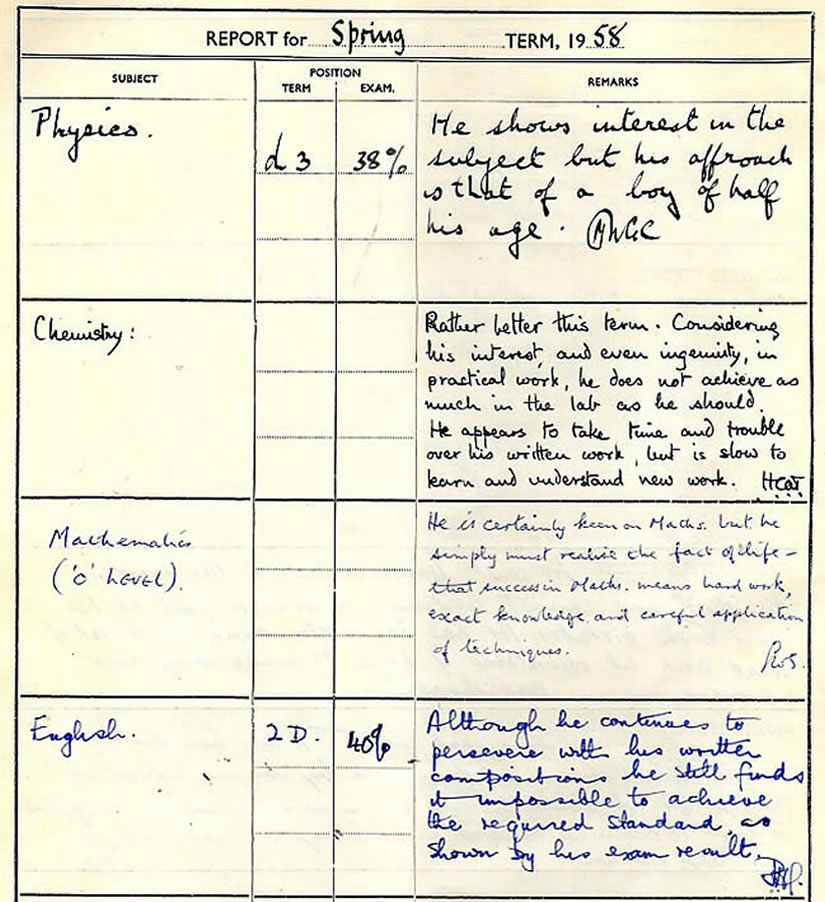 REPORT for Spring TERM, 19 58
SUBJECT
POSITION
TERM EXAM.
REMARKS
Physics.
d 3 38%
He shows interest in the
subject but his approach
is that of a boy of half
his age. MWGC
Chemistry:
Rather better this term. Considering
his interest, and even ingenuity, in
practical work, he does not achieve as
much in the lab as he should.
He appears to take time and trouble
over his written work, but is slow to
learn and understand new work.
Mathematics
('O' LEVEL).
He is certainly keen on Maths. but he
simply must realise the fact of life –
that success in Maths. means hard work,
exact knowledge, and careful application
of techniques.
English.
2 D. 40%
Although he continues to
persevere with his written
compositions he still finds
it impossible to achieve
the required standard, as
shown by his exam result.